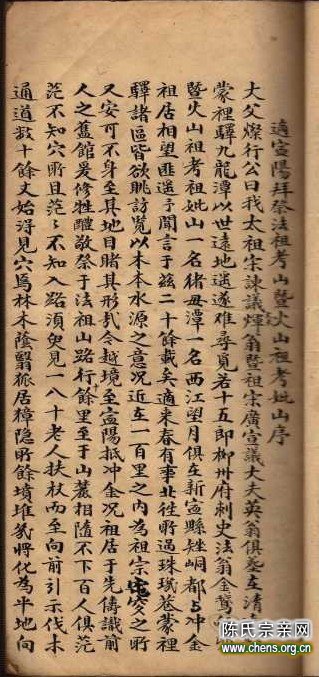 適宣陽拜祭法祖考山暨火山祖考妣山序
大父燦行公曰我太祖宗諫議煇翁暨祖宗廣宣議大夫英翁俱塟左清
蒙裡驛九龍潭以世遠地遥遂难尋覓若十五郎柳州府刺史法翁金鵞
暨火山祖考祖妣山一名豬毋潭一名西江望月俱在新宣縣矬峒都与冲金
祖居相望匪遥予聞言于兹二十餘載矣適来春有事北徃所過珠璣巷蒙裡
驛諸區皆欲眺訪覽以本本水源之意况近在一百里之内為祖宗窀穸之所
又安可不身至其地目睹其形㦲令越境至宣陽抵冲金况祖居于先儔識前
人之舊館爰修牲醴敬祭于法祖山路行餘里至于山麓相隨不下百人俱茫
茫不知穴所且茫茫不知入路須臾見一八十老人扶杖而至向前引示伐木
通道数十餘丈始淂見穴焉林木蔭翳狐居樟隐所餘墳堆㡬将化為平地向
陈氏宗亲网
www.chens.org.cn